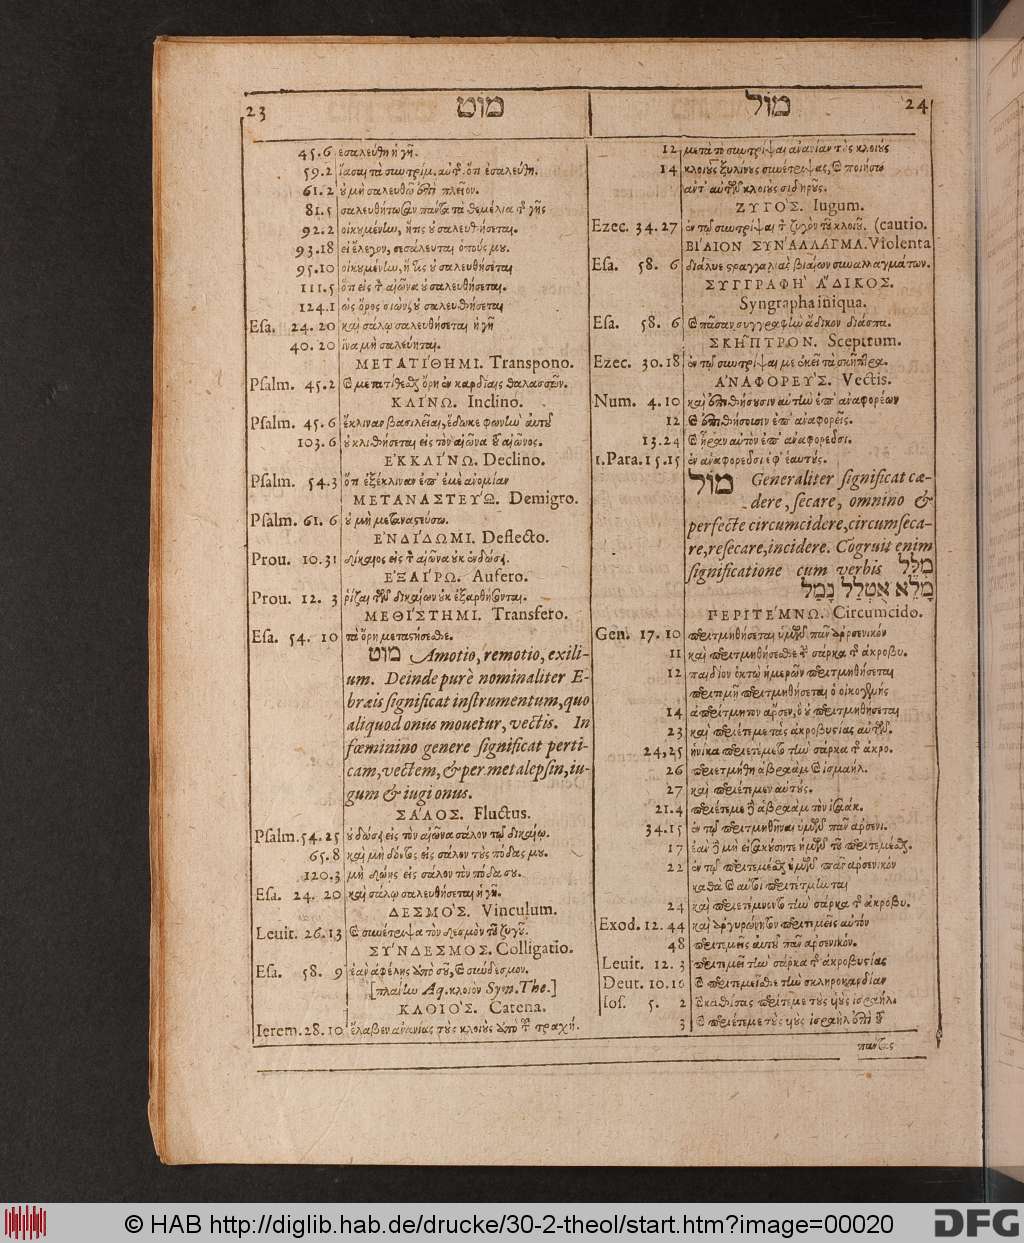 23 מוט
45.6 ἐσαλεύθη ἡ γῆ.
59.2 ἴασαι τὰ συντρίμ. αὐτ͂. ὅτι ἐσαλεύθη.
61.2 οὐ μὴ σαλευθῶ ἐπὶ πλεῖον.
81.5 σαλευθήτωσαν πάντα τὰ θεμέλια τ͂ γῆς
92.2 οἰκουμένην, ἥτις οὐ σαλευθήσεται.
93.18 εἰ ἔλεγον, σεσάλευται ὁ πούς μου.
95.10 οἰκουμένην, ἥτις οὐ σαλευθήσεται
111.5 ὅτι εἰς τ͂ αἰῶνα οὐ σαλευθήσεται.
124.1 ὡς ὄρος σιὼν, οὐ σαλευθήσεται
Esa. 24. 20 καὶ σάλῳ σαλευθήσεται ἡ γῆ
40. 20 ἵνα μὴ σαλεύηται.
ΜΕΤΑΤΙΘΗΜΙ. Transpono.
Psalm. 45.2 καὶ μετατίθεσθαι ὄρη ἐν καρδίαις θαλασσῶν.
ΚΛΙΝΩ. Inclino.
Psalm. 45.6 ἔκλιναν βασιλεῖαι, ἔδωκε φωνὴν αὐτοῦ
103.6 οὐ κλιθήσεται εἰς τὸν αἰῶνα τοῦ αἰῶνος.
ΕΚΚΛΙΝΩ. Declino.
Psalm. 54.3 ὅτι ἐξέκλιναν ἐπ' ἐμὲ ἀνομίαν
ΜΕΤΑΝΑΣΤΕΥΩ. Demigro.
Psalm. 61.6 οὐ μὴ μεταναστεύσω.
ΕΝΔΙΔΩΜΙ. Deflecto.
Prou. 10.31 δίκαιος εἰς τ͂ αἰῶνα οὐκ ἐνδώσει.
ΕΞΑΙΡΩ. Aufero.
Prou. 12. 3 ῥίζαι τῶν δικαίων οὐκ ἐξαρθήσονται.
ΜΕΘΙΣΤΗΜΙ. Transfero.
Esa. 54. 10 τὰ ὄρη μεταστήσεσθε.
מוט Amotio, remotio, exili-
um. Deinde purè nominaliter E-
bræis significat instrumentum, quo
aliquod onus mouetur, vectis. In
fœminino genere significat perti-
cam, vectem, & per metalepsin, iu-
gum & iugi onus.
ΣΑΛΟΣ. Fluctus.
Psalm. 54.25 οὐ δώσει εἰς τὸν αἰῶνα σάλον τῷ δικαίῳ.
65.8 καὶ μὴ δόντος εἰς σάλον τοὺς πόδας μου.
120.3 μὴ δώῃς εἰς σάλον τὸν πόδα σου.
Esa. 24. 20 καὶ σάλῳ σαλευθήσεται ἡ γῆ.
ΔΕΣΜΟΣ. Vinculum.
Leuit. 26.13 καὶ συνέτριψα τὸν δεσμὸν τοῦ ζυγοῦ.
ΣΥΝΔΕΣΜΟΣ. Colligatio.
Esa. 58. 9 ἐὰν ἀφέλῃς ἀπὸ σοῦ, καὶ σύνδεσμον.
Aq. κλοιὸν Sym. The.]
ΚΛΟΙΟΣ. Catena.
Ierem. 28. 10 ἔλαβεν ἀνανίας τοὺς κλοιοὺς ἀπὸ τοῦ τραχή.
מול 24
12 μετὰ τὸ συντρίψαι ἀνανίαν τοὺς κλοιούς
14 κλοιοὺς ξυλίνους συνέτριψας, καὶ ποιήσω
ἀντ' αὐτῶν κλοιοὺς σιδηροῦς.
ΖΥΓΟΣ. Iugum.
Ezec. 34. 27 ἐν τῷ συντρίψαι τ͂ ζυγὸν τοῦ κλοιοῦ. (cautio.
ΒΙΑΙΟΝ ΣΥΝΑΛΛΑΓΜΑ. Violenta
Esa. 58. 6 διάλυε στραγγαλιὰς βιαίων συναλλαγμάτων.
ΣΥΓΓΡΑΦΗ ΑΔΙΚΟΣ.
Syngrapha iniqua.
Esa. 58. 6 καὶ πᾶσαν συγγραφὴν ἄδικον διάσπα.
ΣΚΗΠΤΡΟΝ. Sceptrum.
Ezec. 30. 18 ἐν τῷ συντρίψαι με ἐκεῖ τὰ σκῆπτρα.
ΑΝΑΦΟΡΕΥΣ. Vectis.
Num. 4. 10 καὶ ἐπιθήσουσιν αὐτὴν ἐπ' ἀναφορέων
12 καὶ ἐπιθήσουσιν ἐπ' ἀναφορεῖς.
13.24 καὶ ἦραν αὐτὸν ἐπ' ἀναφορεῦσι.
1.Para. 15.15 ἐν ἀναφορεῦσι ἐφ' ἑαυτούς.
מול Generaliter significat cæ-
dere, secare, omnino &
perfectè circumcidere, circumseca-
re, resecare, incidere. Cogruit enim
significatione cum verbis מלל
מלא אטלל נמל
ΠΕΡΙΤΕΜΝΩ. Circumcido.
Gen. 17. 10 περιτμηθήσεται ὑμῶν πᾶν ἀρσενικόν
11 καὶ περιτμηθήσεσθε τ͂ σάρκα τ͂ ἀκροβυ.
12 παιδίον ὀκτὼ ἡμερῶν περιτμηθήσεται
περιτομῇ περιτμηθήσεται ὁ οἰκογενής
14 ἀπερίτμητον ἄρσεν, ὃ οὐ περιτμηθήσεται
23 καὶ περιέτεμε τὰς ἀκροβυστίας αὐτῶν.
24, 25 ἡνίκα περιετέμετο τὴν σάρκα τ͂ ἀκρο.
26 περιετμήθη ἀβραὰμ καὶ ἰσμαήλ.
27 καὶ περιέτεμεν αὐτούς.
21.4 περιέτεμε δὲ ἀβραὰμ τὸν ἰσαάκ.
34.15 ἐν τῷ περιτμηθῆναι ὑμῶν πᾶν ἀρσενι.
17 ἐὰν δὲ μὴ εἰσακούσητε ἡμῶν τοῦ περιτεμέσθαι.
22 ἐν τῷ περιτεμέσθαι ἡμῶν πᾶν ἀρσενικὸν
καθὰ καὶ αὐτοὶ περιτέτμηνται
24 καὶ περιετέμνοντο τὴν σάρκα τ͂ ἀκροβυ.
Exod. 12. 44 καὶ ἀργυρώνητον περιτεμεῖς αὐτόν
48 περιτεμεῖς αὐτοῦ πᾶν ἀρσενικόν.
Leuit. 12. 3 περιτεμεῖ τὴν σάρκα τ͂ ἀκροβυστίας
Deut. 10. 16 καὶ περιτεμεῖσθε τὴν σκληροκαρδίαν
Ios. 5. 2 καὶ καθίσας περίτεμε τοὺς υἱοὺς ἰσραήλ.
3 καὶ περιέτεμε τοὺς υἱοὺς ἰσραὴλ ἐπὶ τοῦ
πάντας
© HAB http://diglib.hab.de/drucke/30-2-theol/start.htm?image=00020
DFG